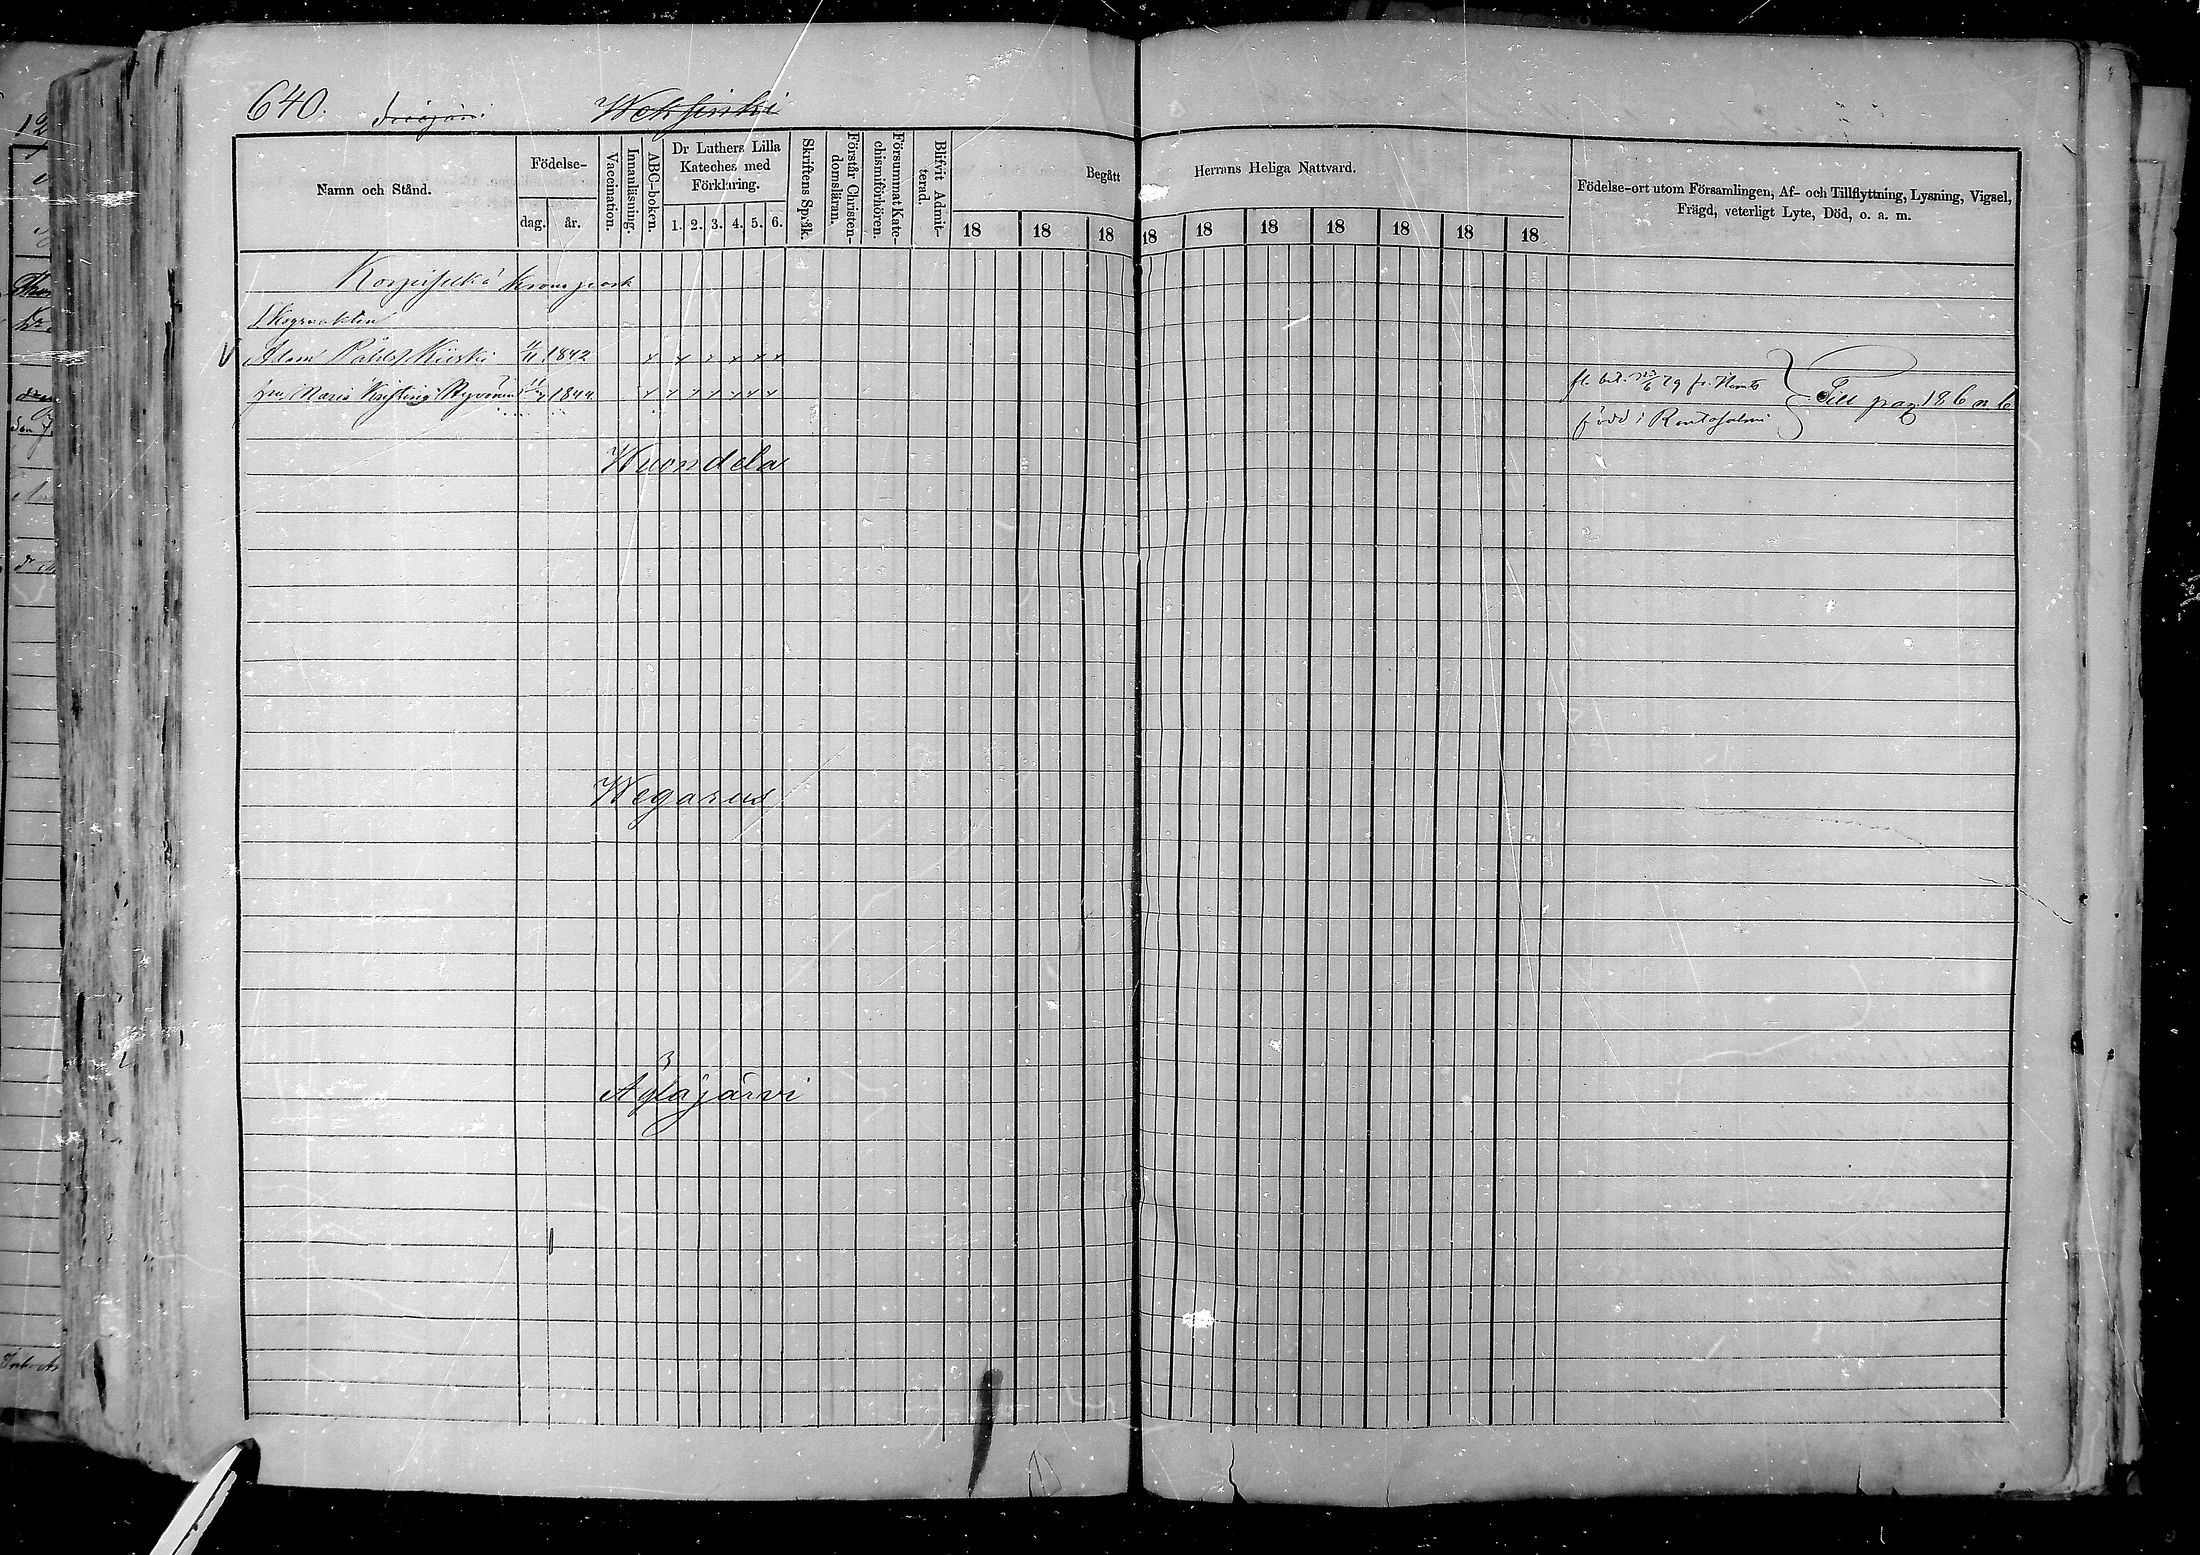 640. Weksinki
Namn och Stånd.
Födelse-
dag. år.
Vaccination.
Innanläsning.
ABC-boken.
Dr Luthers Lilla
Kateches med
Förklaring.
1. 2. 3. 4. 5. 6.
Skriftens Språk.
Förstår Christen-
domsläran.
Försummat Kate-
chismiförhören.
Blifvit Admit-
terad.
Begått Herrans Heliga Nattvard.
18 18 18 18 18 18 18 18 18 18
Födelse-ort utom Församlingen, Af- och Tillflyttning, Lysning, Vigsel,
Frägd, veterligt Lyte, Död, o. a. m.
Korpiselkä Kronopark
Skogsvakten
Adam Påhls. Kiiski 1842
Maria Kristina 1844
fl. bet. 79 fr.
född i Rantasalmi
Till pag 186 n 6
Wuondela
Wegarus
Äglajärvi